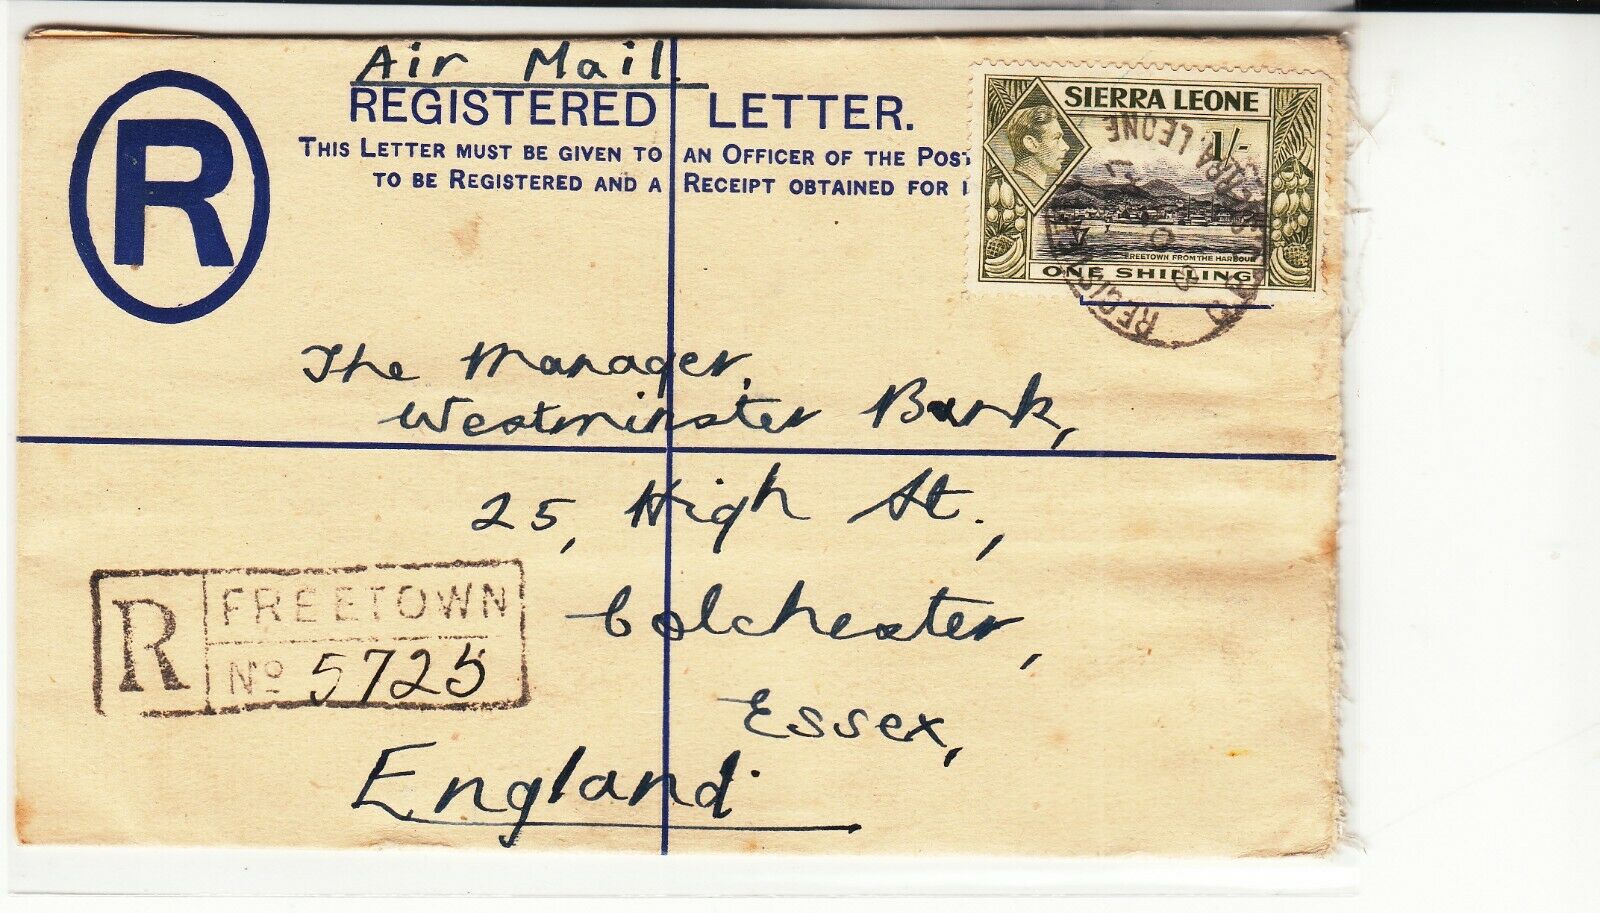 Air Mail
REGISTERED LETTER.
THIS LETTER MUST BE GIVEN TO AN OFFICER OF THE POST
TO BE REGISTERED AND A RECEIPT OBTAINED FOR I
R
SIERRA LEONE
1/-
FREETOWN FROM THE HARBOUR
ONE SHILLING
The Manager,
Westminster Bank,
25, High St.,
Colchester,
Essex,
England.
R
FREETOWN
No 5725